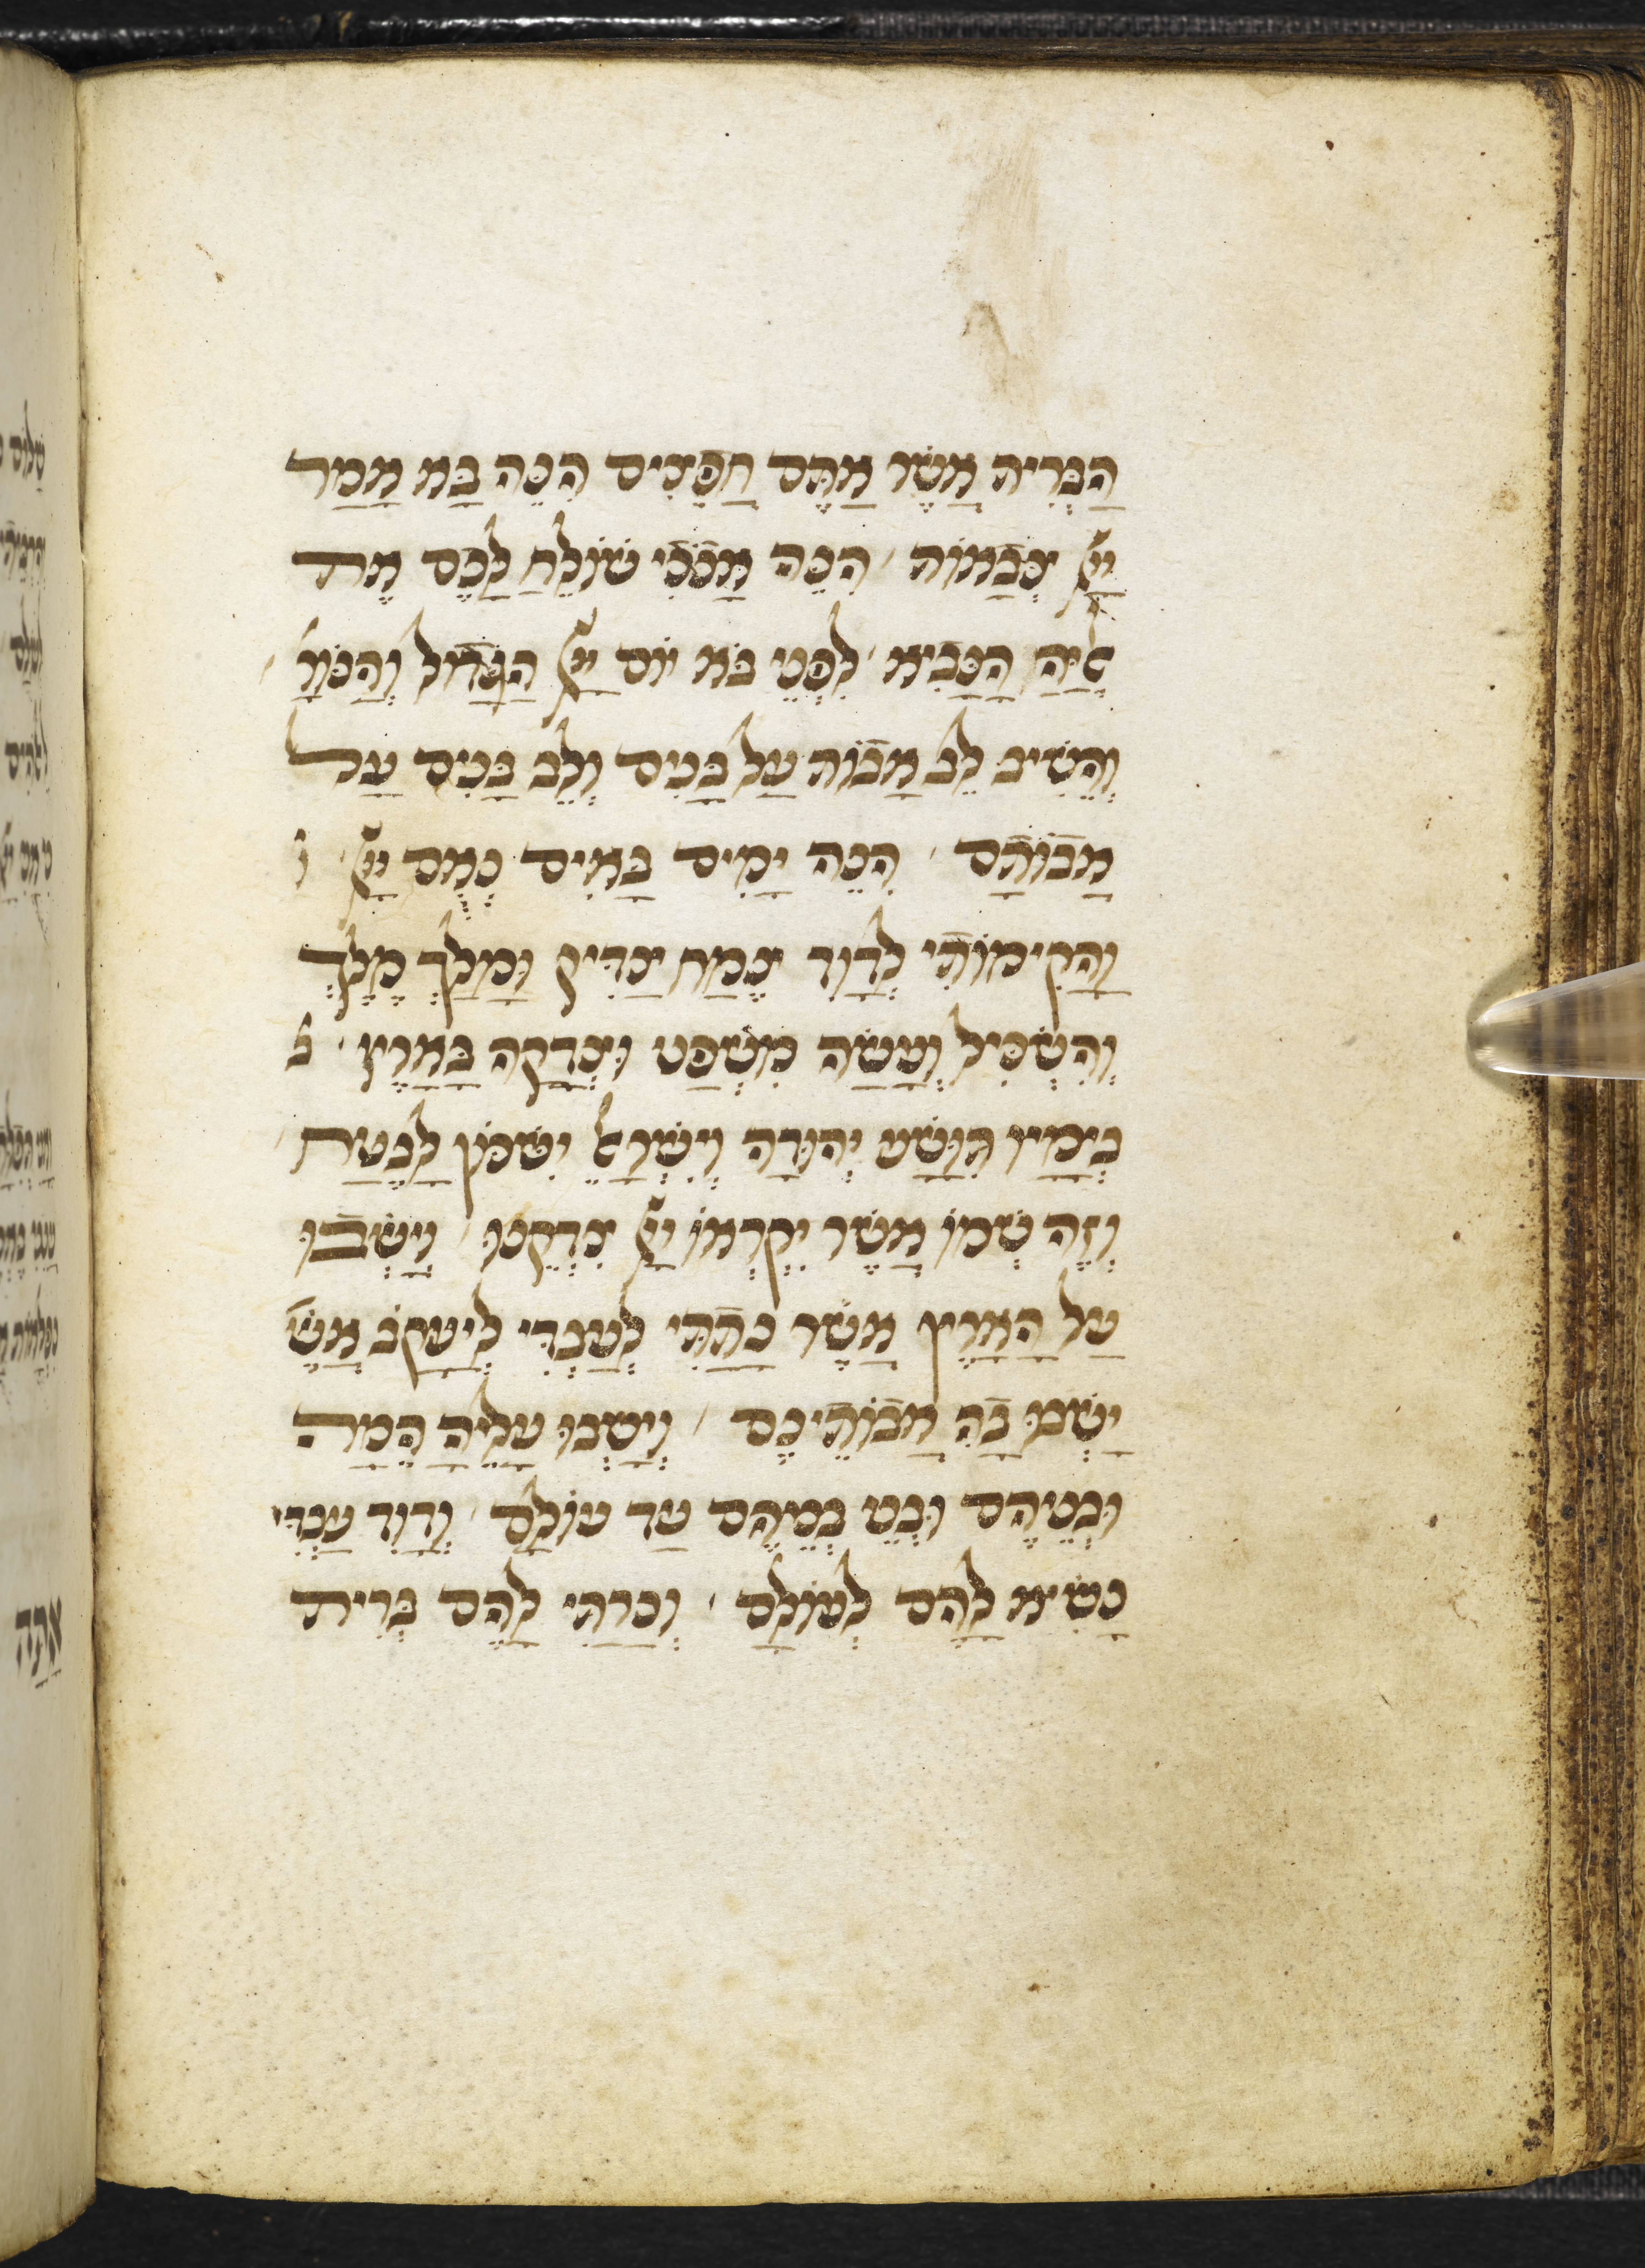 הַבְּרִית אֲשֶׁר אַתֶּם חֲפֵצִים הִנֵּה בָּא אָמַר
יְיָ צְבָאוֹת הִנֵּה אָנֹכִי שׁוֹלֵחַ לָכֶם אֶת
אֵלִיָּה הַנָּבִיא לִפְנֵי בֹּא יוֹם יְיָ הַגָּדוֹל וְהַנּוֹרָא
וְהֵשִׁיב לֵב אָבוֹת עַל בָּנִים וְלֵב בָּנִים עַל
אֲבוֹתָם הִנֵּה יָמִים בָּאִים נְאֻם יְיָ
וַהֲקִימוֹתִי לְדָוִד צֶמַח צַדִּיק וּמָלַךְ מֶלֶךְ
וְהִשְׂכִּיל וְעָשָׂה מִשְׁפָּט וּצְדָקָה בָּאָרֶץ
בְּיָמָיו תִּוָּשַׁע יְהוּדָה וְיִשְׂרָאֵל יִשְׁכֹּן לָבֶטַח
וְזֶה שְׁמוֹ אֲשֶׁר יִקְרְאוֹ יְיָ צִדְקֵנוּ וְיָשְׁבוּ
עַל הָאָרֶץ אֲשֶׁר נָתַתִּי לְעַבְדִּי לְיַעֲקֹב אֲשֶׁר
יָשְׁבוּ בָהּ אֲבוֹתֵיכֶם וְיָשְׁבוּ עָלֶיהָ הֵמָּה
וּבְנֵיהֶם וּבְנֵי בְנֵיהֶם עַד עוֹלָם וְדָוִד עַבְדִּי
נָשִׂיא לָהֶם לְעוֹלָם וְכָרַתִּי לָהֶם בְּרִית